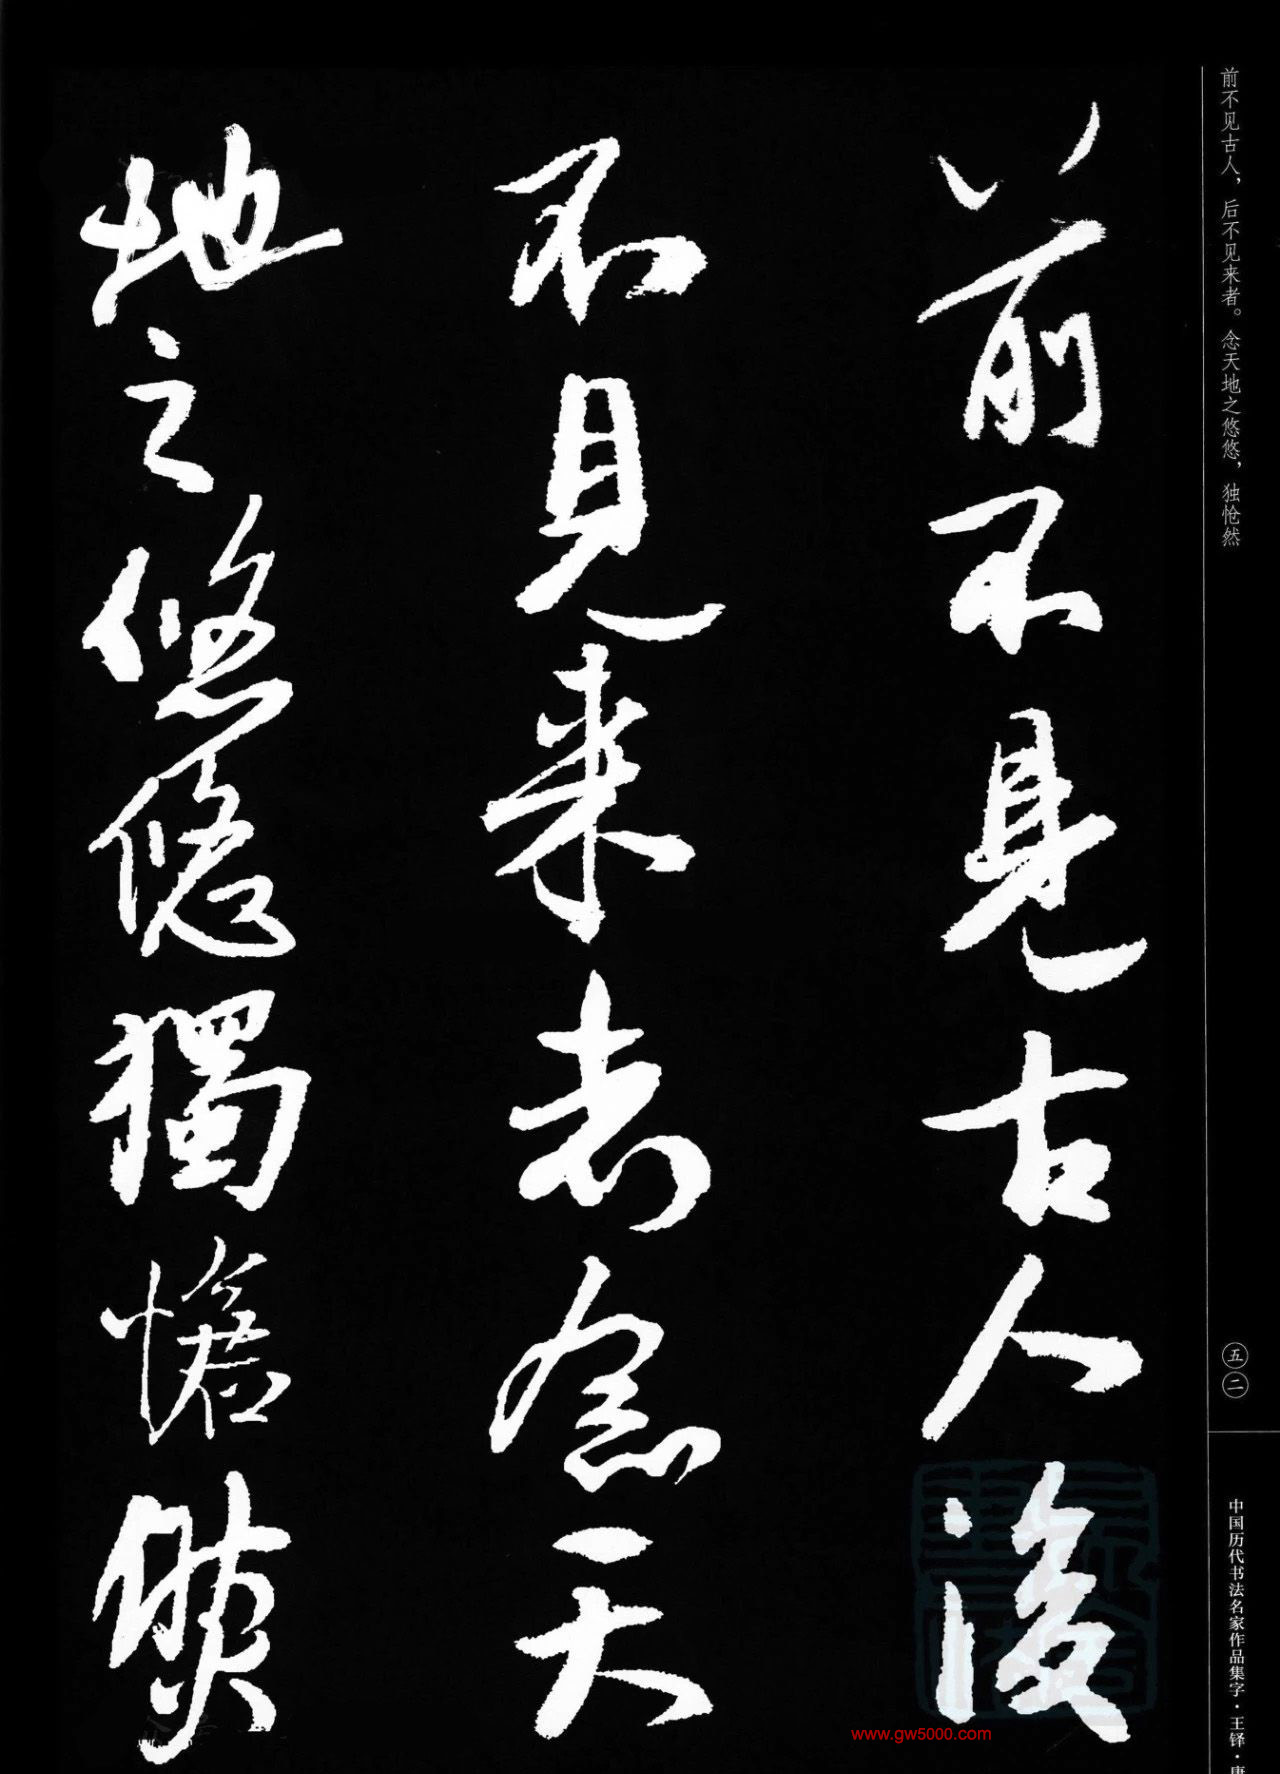 前不見古人後
不見來者念天
地之悠悠獨愴然
前不见古人，后不见来者。念天地之悠悠，独怆然
五二
中国历代书法名家作品集字·王铎·唐
www.gw5000.com